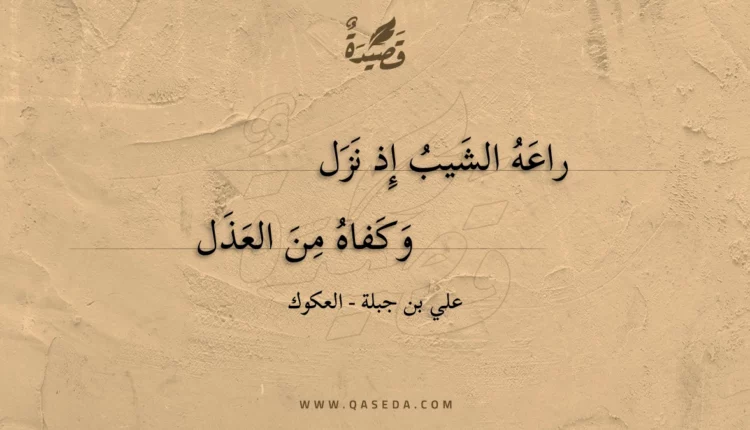 قَصِيْدَةٌ
راعَهُ الشَيبُ إِذ نَزَل
وَكَفاهُ مِنَ العَذَل
علي بن جبلة - العكوك
WWW.QASEDA.COM